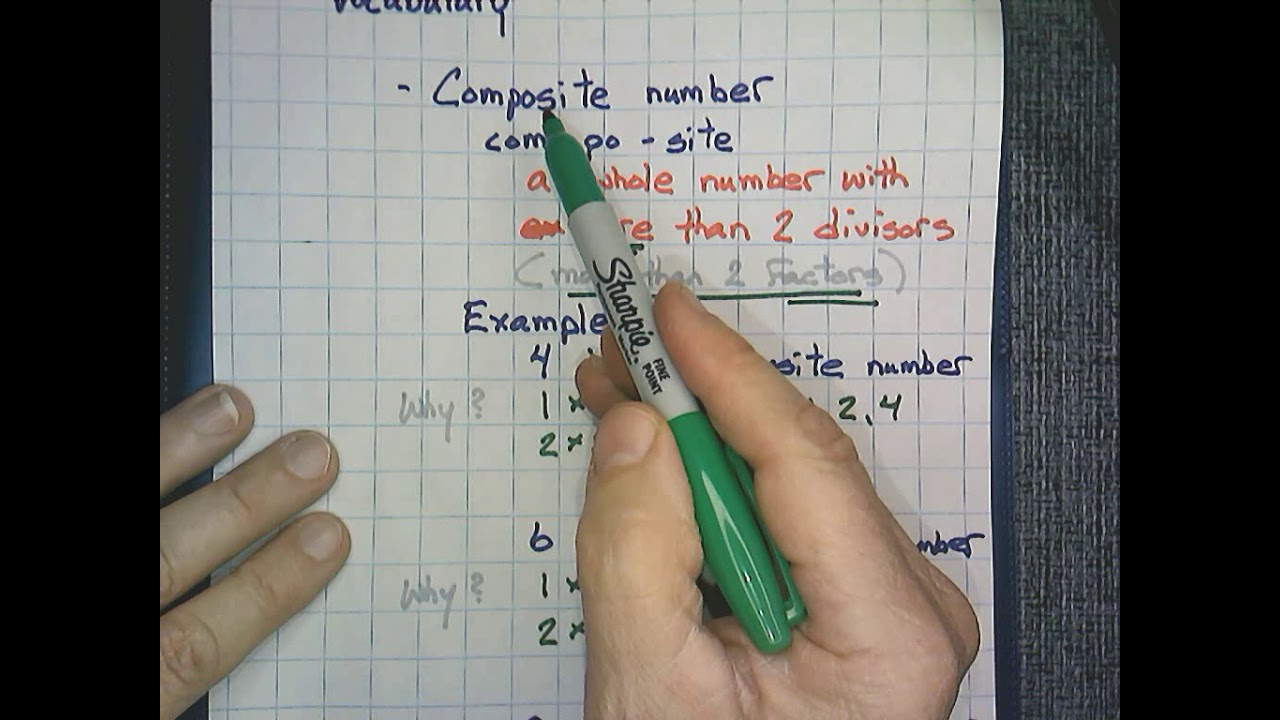 Vocabulary
- Composite number
com po - site
a whole number with
than 2 divisors
( than 2 Factors)
Example
4 number
Why? 1 × 2, 4
2 ×
6
Why? 1 ×
2 ×
Sharpie
FINE
POINT